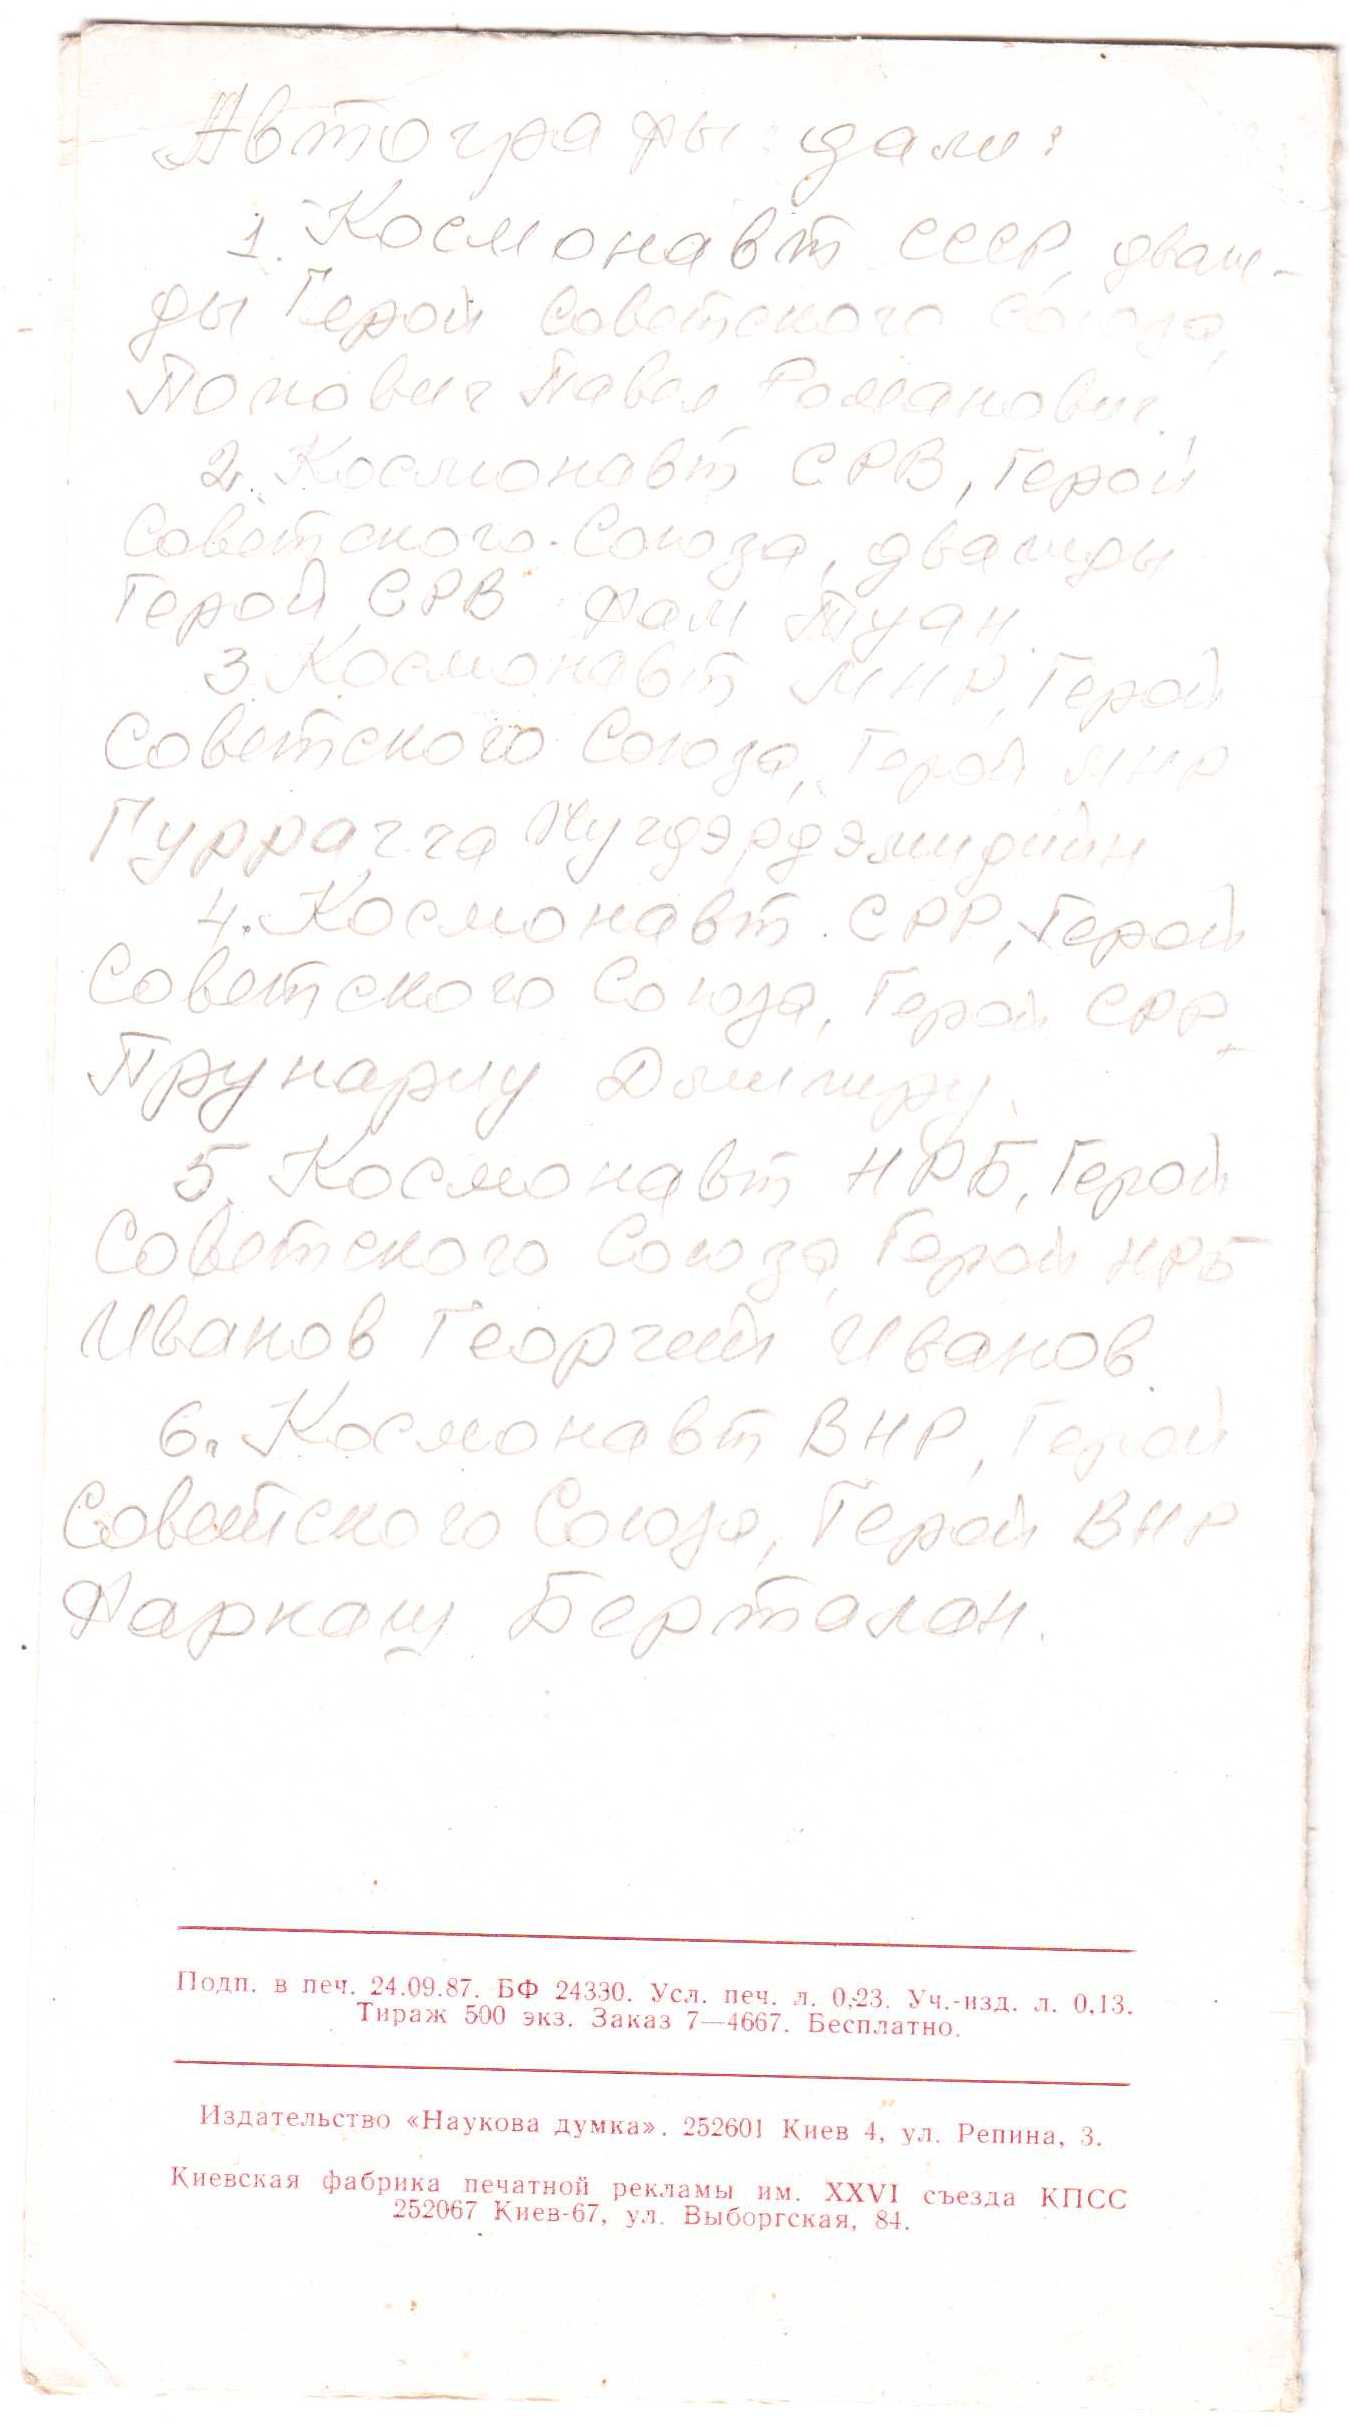 Автографы дали:
1. Космонавт СССР, дваж-
ды Герой Советского Союза,
Попович Павел Романович.
2. Космонавт СРВ, Герой
Советского Союза, дважды
Герой СРВ Фам Туан.
3. Космонавт МНР, Герой
Советского Союза, Герой МНР
Гуррагча Жугдэрдэмидийн
4. Космонавт СРР, Герой
Советского Союза, Герой СРР,
Прунариу Думитру.
5. Космонавт НРБ, Герой
Советского Союза, Герой НРБ
Иванов Георгий Иванов.
6. Космонавт ВНР, Герой
Советского Союза, Герой ВНР
Фаркаш Берталан.
Подп. в печ. 24.09.87. БФ 24330. Усл. печ. л. 0,23. Уч.-изд. л. 0,13.
Тираж 500 экз. Заказ 7—4667. Бесплатно.
Издательство «Наукова думка». 252601 Киев 4, ул. Репина, 3.
Киевская фабрика печатной рекламы им. XXVI съезда КПСС
252067 Киев-67, ул. Выборгская, 84.